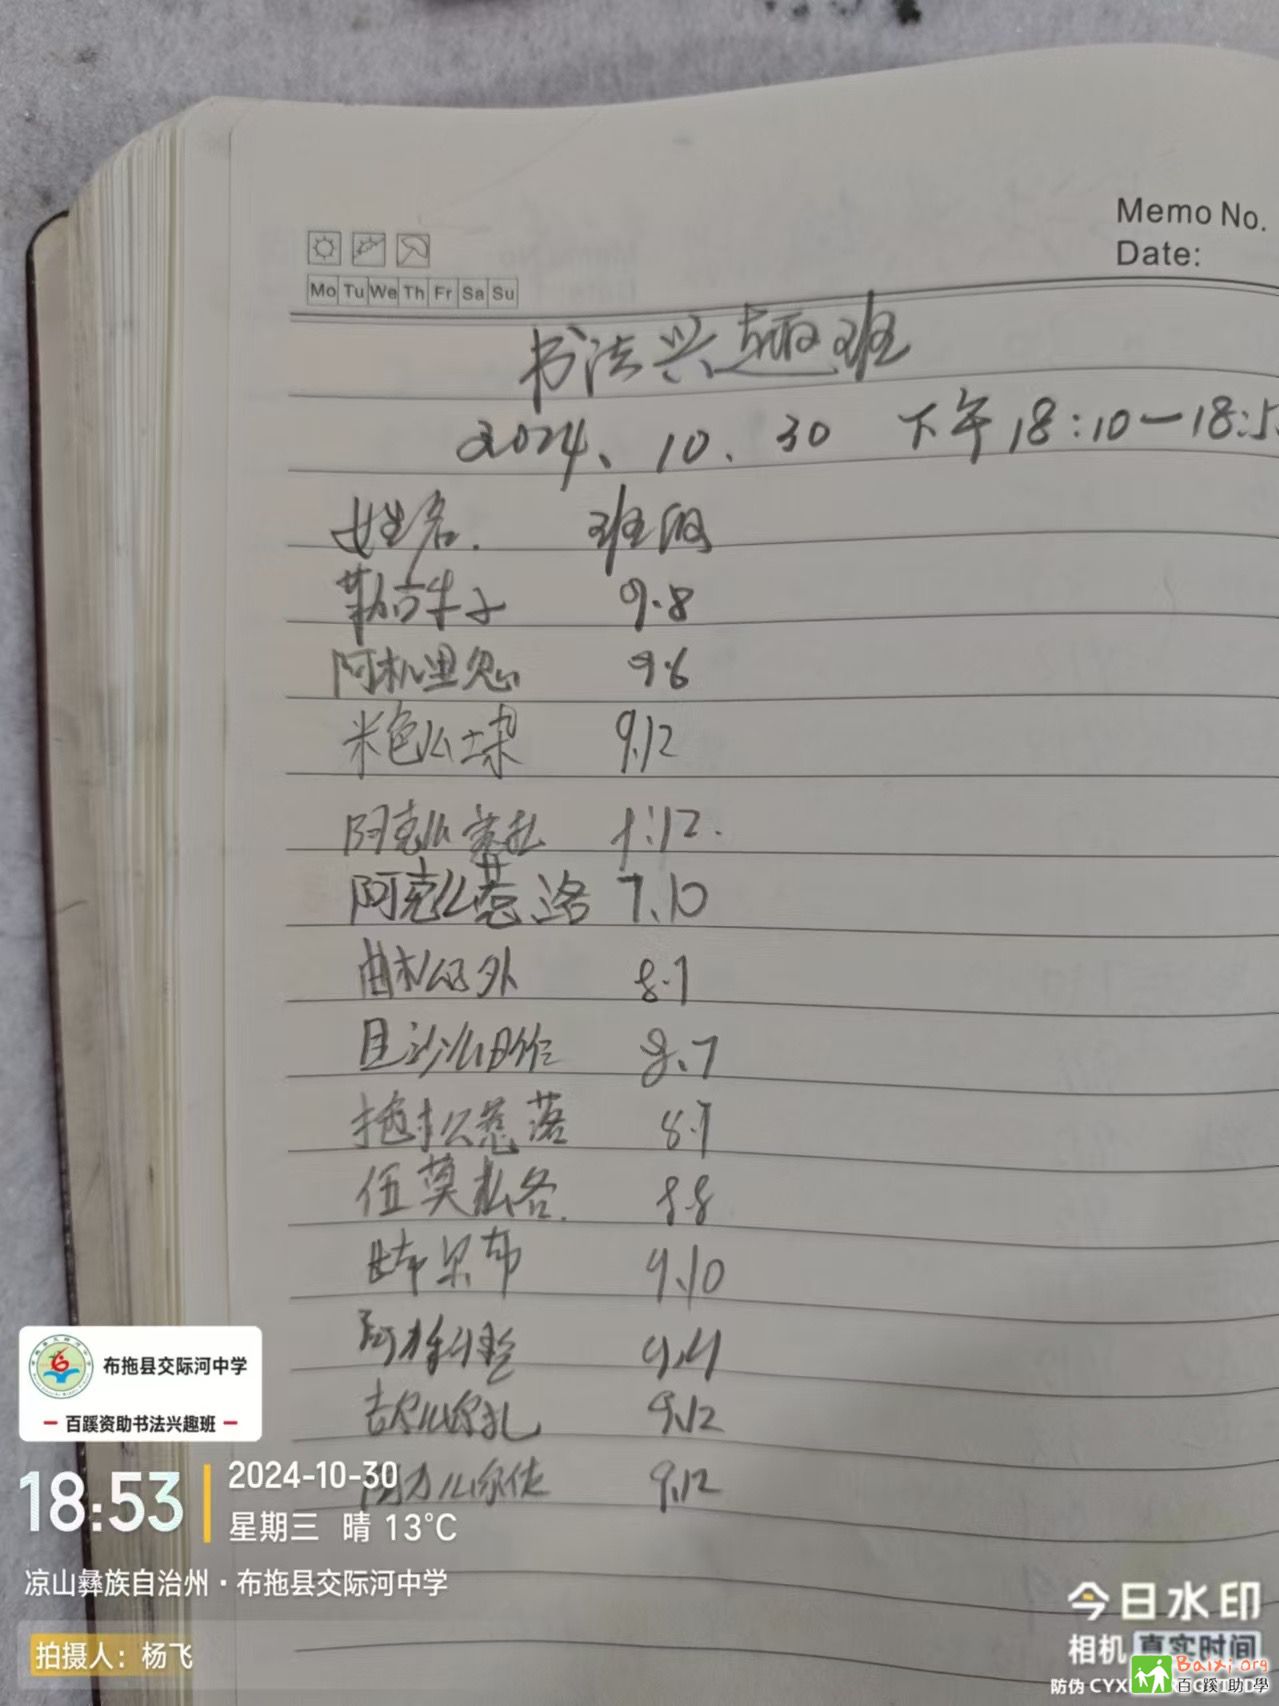 Memo No.
Date:
Mo Tu We Th Fr Sa Su
书法兴趣班
2024、10、30 下午18:10—18:5
姓名. 班级
勒古牛子 9.8
阿机里忽 9.6
米色么 9.12
阿克么 1:12.
阿克么惹洛 7.10
曲木么外 8.7
且沙么日作 8.7
拖扒惹落 8.7
伍莫私各. 8.8
尔布 9.10
阿 9.4
吉尔么尔扎 9.12
阿力么尔伕 9.12
布拖县交际河中学
百蹊资助书法兴趣班
18:53
2024-10-30
星期三 晴 13℃
凉山彝族自治州·布拖县交际河中学
拍摄人：杨飞
今日水印
相机 真实时间
防伪 CYX
Baixi.org
百蹊助學